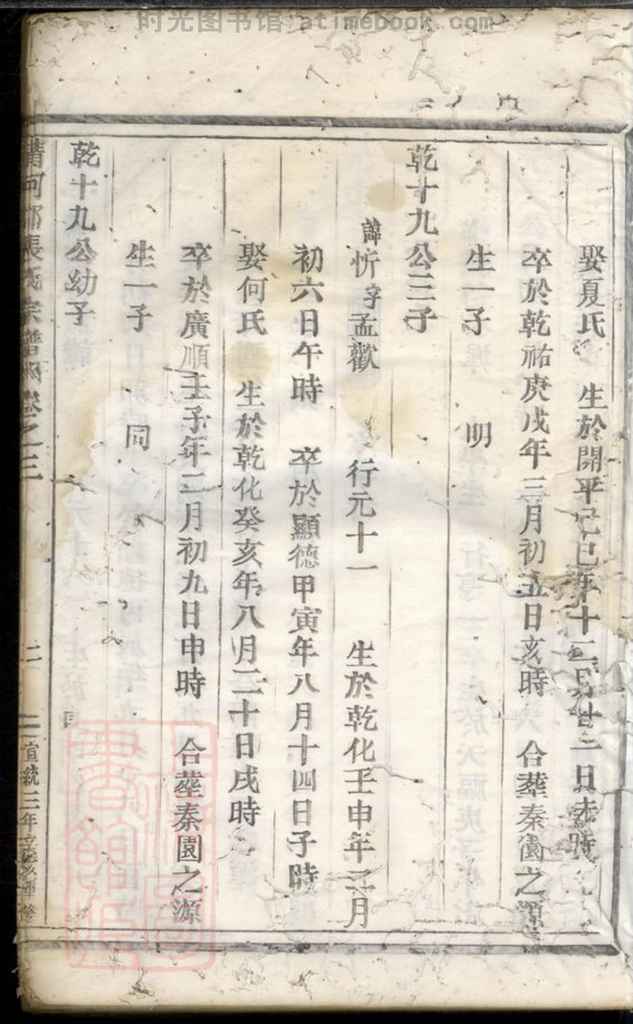 时光图书馆 atimebook.com
娶夏氏 生於開平己巳年十二月廿二日未時
卒於乾祐庚戌年三月初五日亥時 合塟秦園之源
生一子 明
乾十九公三子
諱忻字孟歡 行元十一 生於乾化壬申年二月
初六日午時 卒於顯德甲寅年八月十四日子時
娶何氏 生於乾化癸亥年八月二十日戌時
卒於廣順壬子年二月初九日申時 合塟秦園之源
生一子 同
乾十九公幼子
清河郡張氏宗譜 卷之三 二 宣統三年辛亥重修